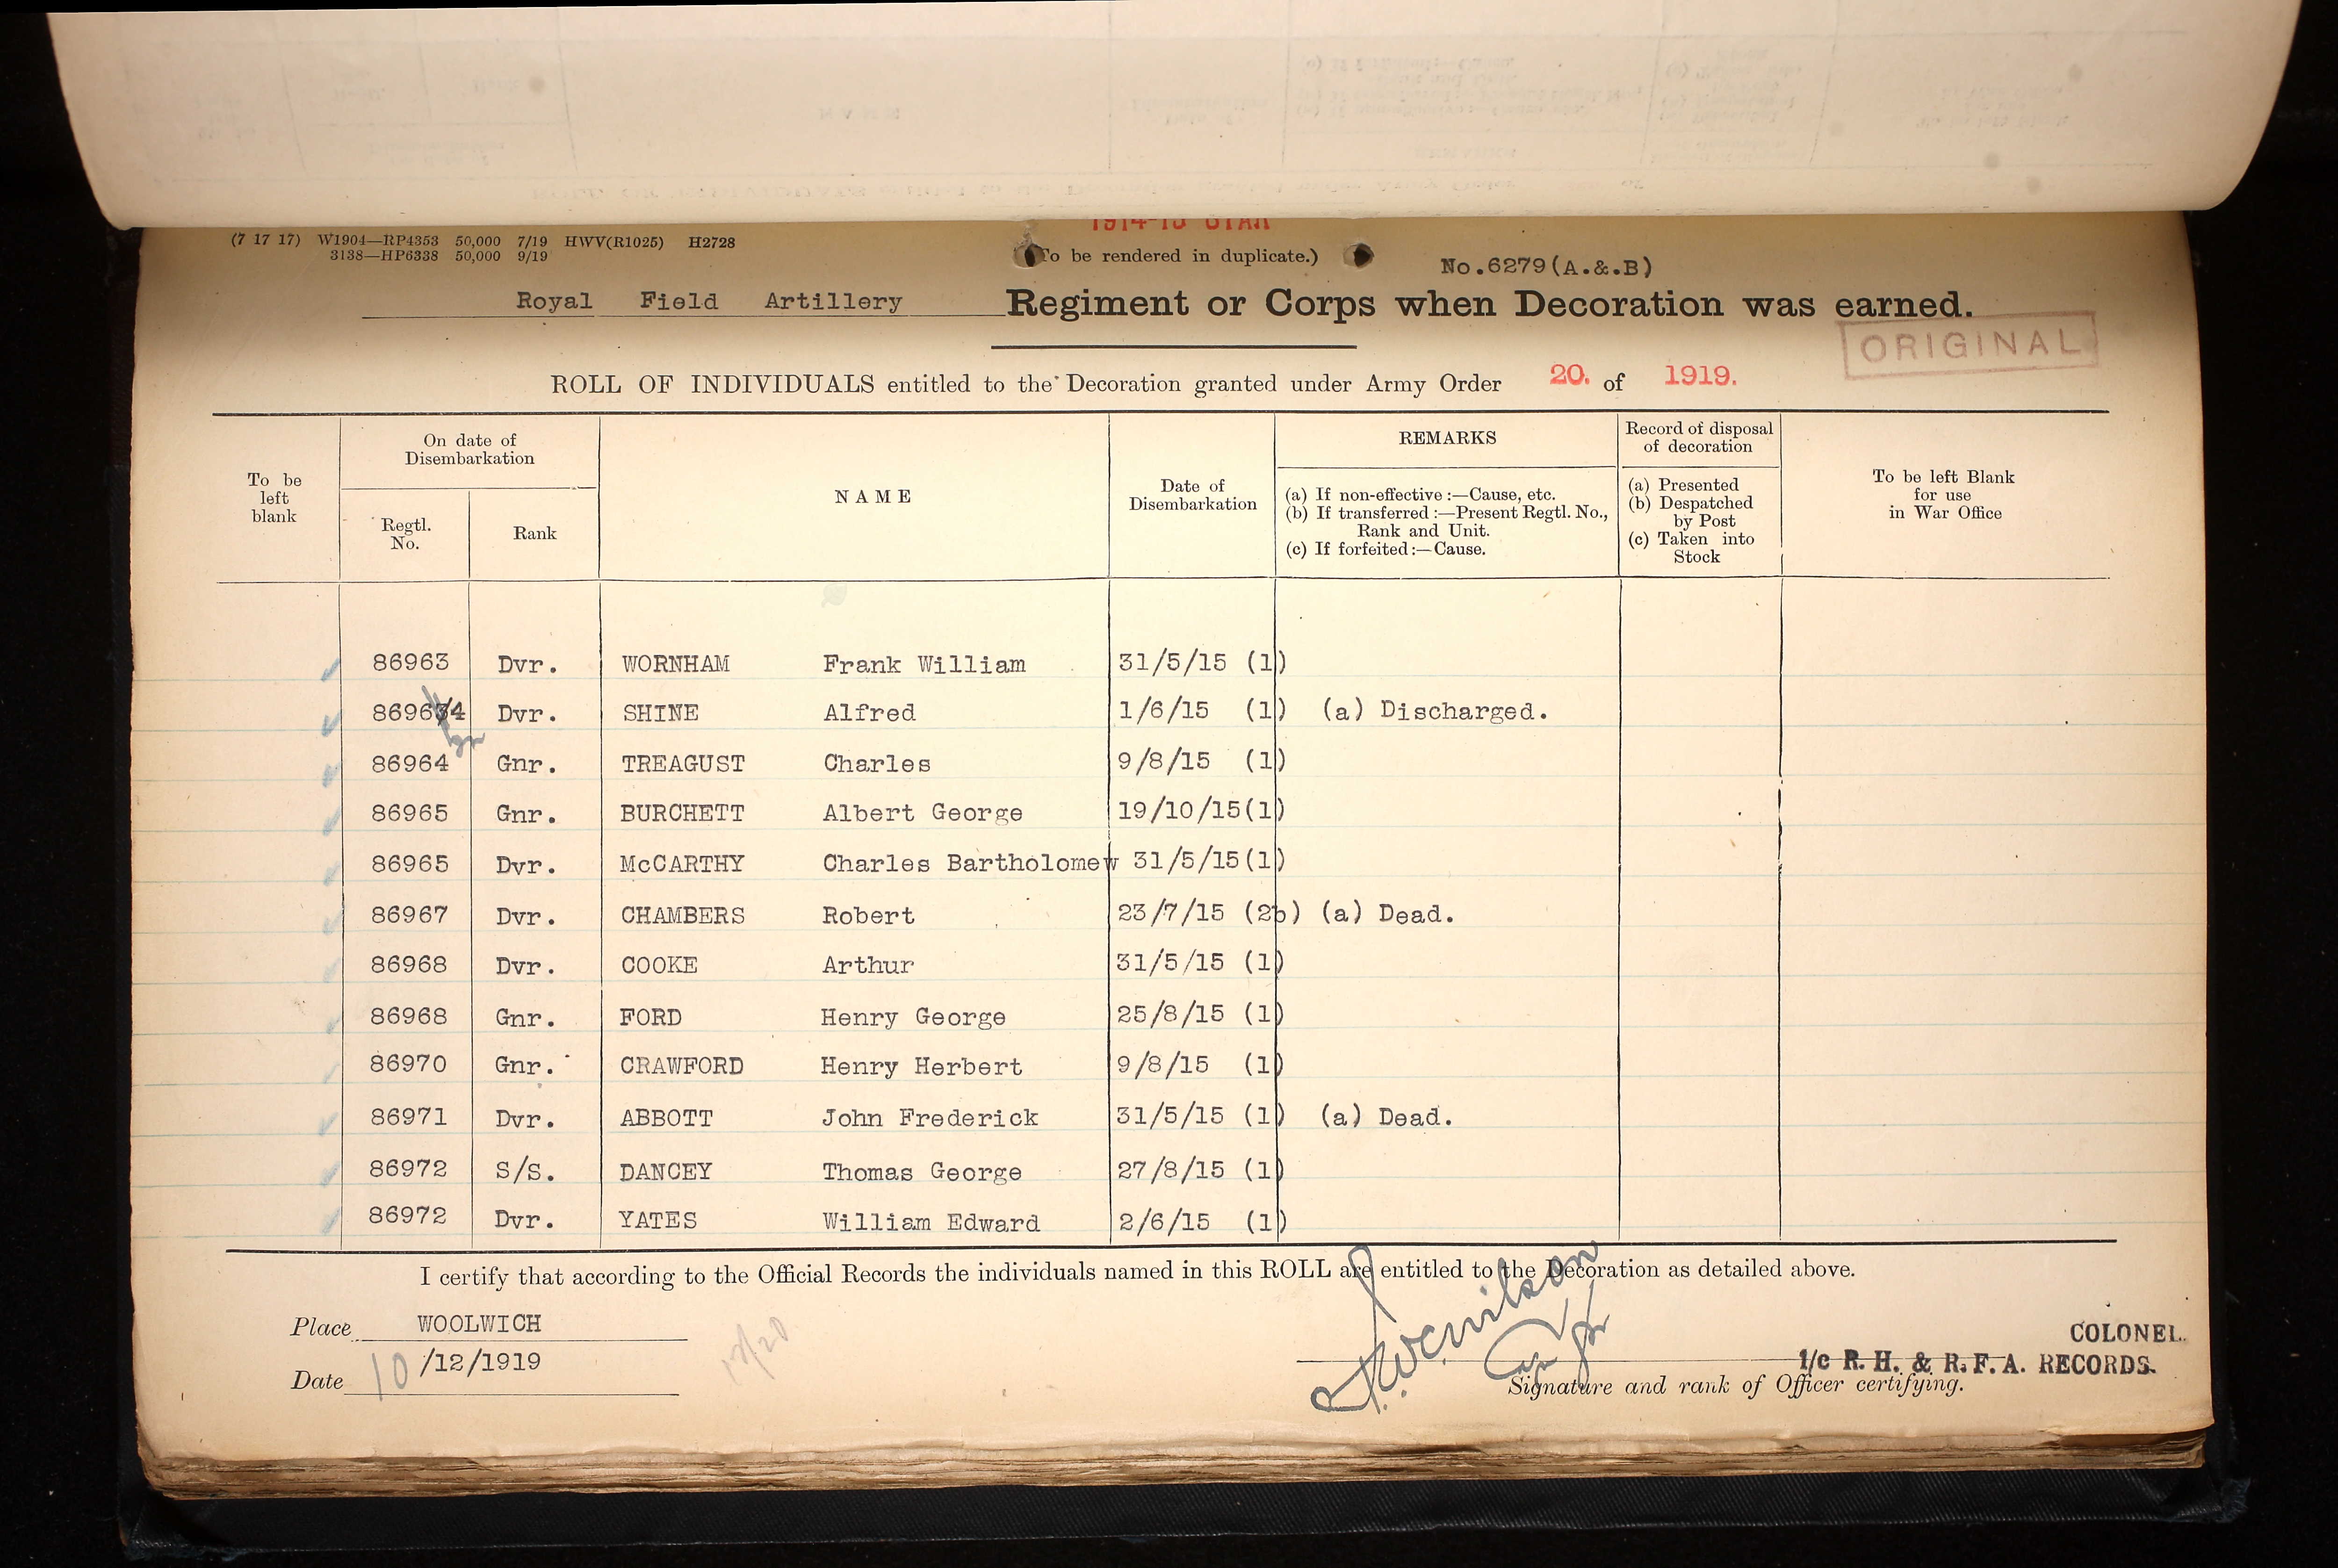 1914-15 STAR
(7 17 17) W1904—RP4353 50,000 7/19 HWV(R1025) H2728
3138—HP6338 50,000 9/19
(To be rendered in duplicate.)
No.6279(A.&.B)
Royal Field Artillery Regiment or Corps when Decoration was earned.
ORIGINAL
ROLL OF INDIVIDUALS entitled to the Decoration granted under Army Order 20. of 1919.
To be left blank
On date of Disembarkation
Regtl. No.
Rank
NAME
Date of Disembarkation
REMARKS
(a) If non-effective :—Cause, etc.
(b) If transferred :—Present Regtl. No., Rank and Unit.
(c) If forfeited :—Cause.
Record of disposal of decoration
(a) Presented
(b) Despatched by Post
(c) Taken into Stock
To be left Blank for use in War Office
86963 Dvr. WORNHAM Frank William 31/5/15 (1)
86963/4 Dvr. SHINE Alfred 1/6/15 (1) (a) Discharged.
86964 Gnr. TREAGUST Charles 9/8/15 (1)
86965 Gnr. BURCHETT Albert George 19/10/15(1)
86965 Dvr. McCARTHY Charles Bartholomew 31/5/15(1)
86967 Dvr. CHAMBERS Robert 23/7/15 (2b) (a) Dead.
86968 Dvr. COOKE Arthur 31/5/15 (1)
86968 Gnr. FORD Henry George 25/8/15 (1)
86970 Gnr. CRAWFORD Henry Herbert 9/8/15 (1)
86971 Dvr. ABBOTT John Frederick 31/5/15 (1) (a) Dead.
86972 S/S. DANCEY Thomas George 27/8/15 (1)
86972 Dvr. YATES William Edward 2/6/15 (1)
I certify that according to the Official Records the individuals named in this ROLL are entitled to the Decoration as detailed above.
Place WOOLWICH
Date 10/12/1919
COLONEL.
I/c R. H. & R. F. A. RECORDS.
Signature and rank of Officer certifying.